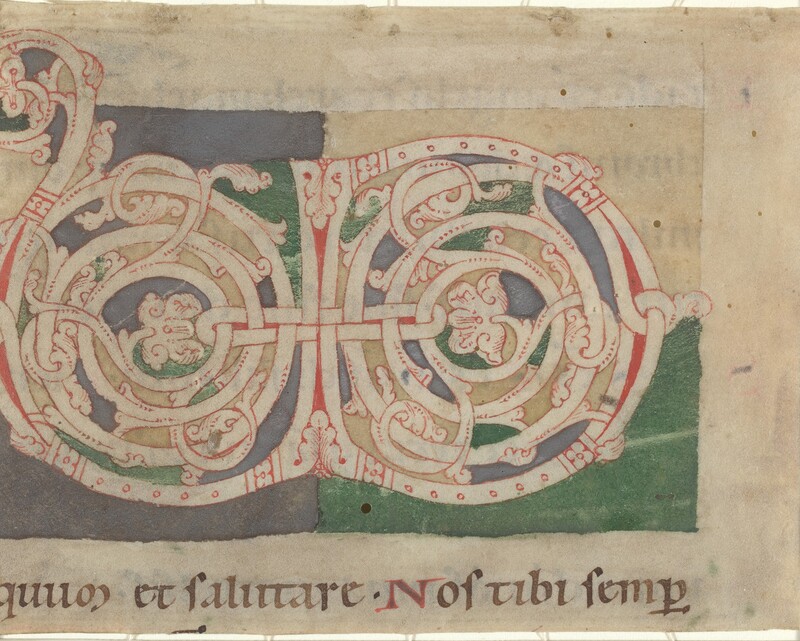 quum et salutare. Nos tibi semp